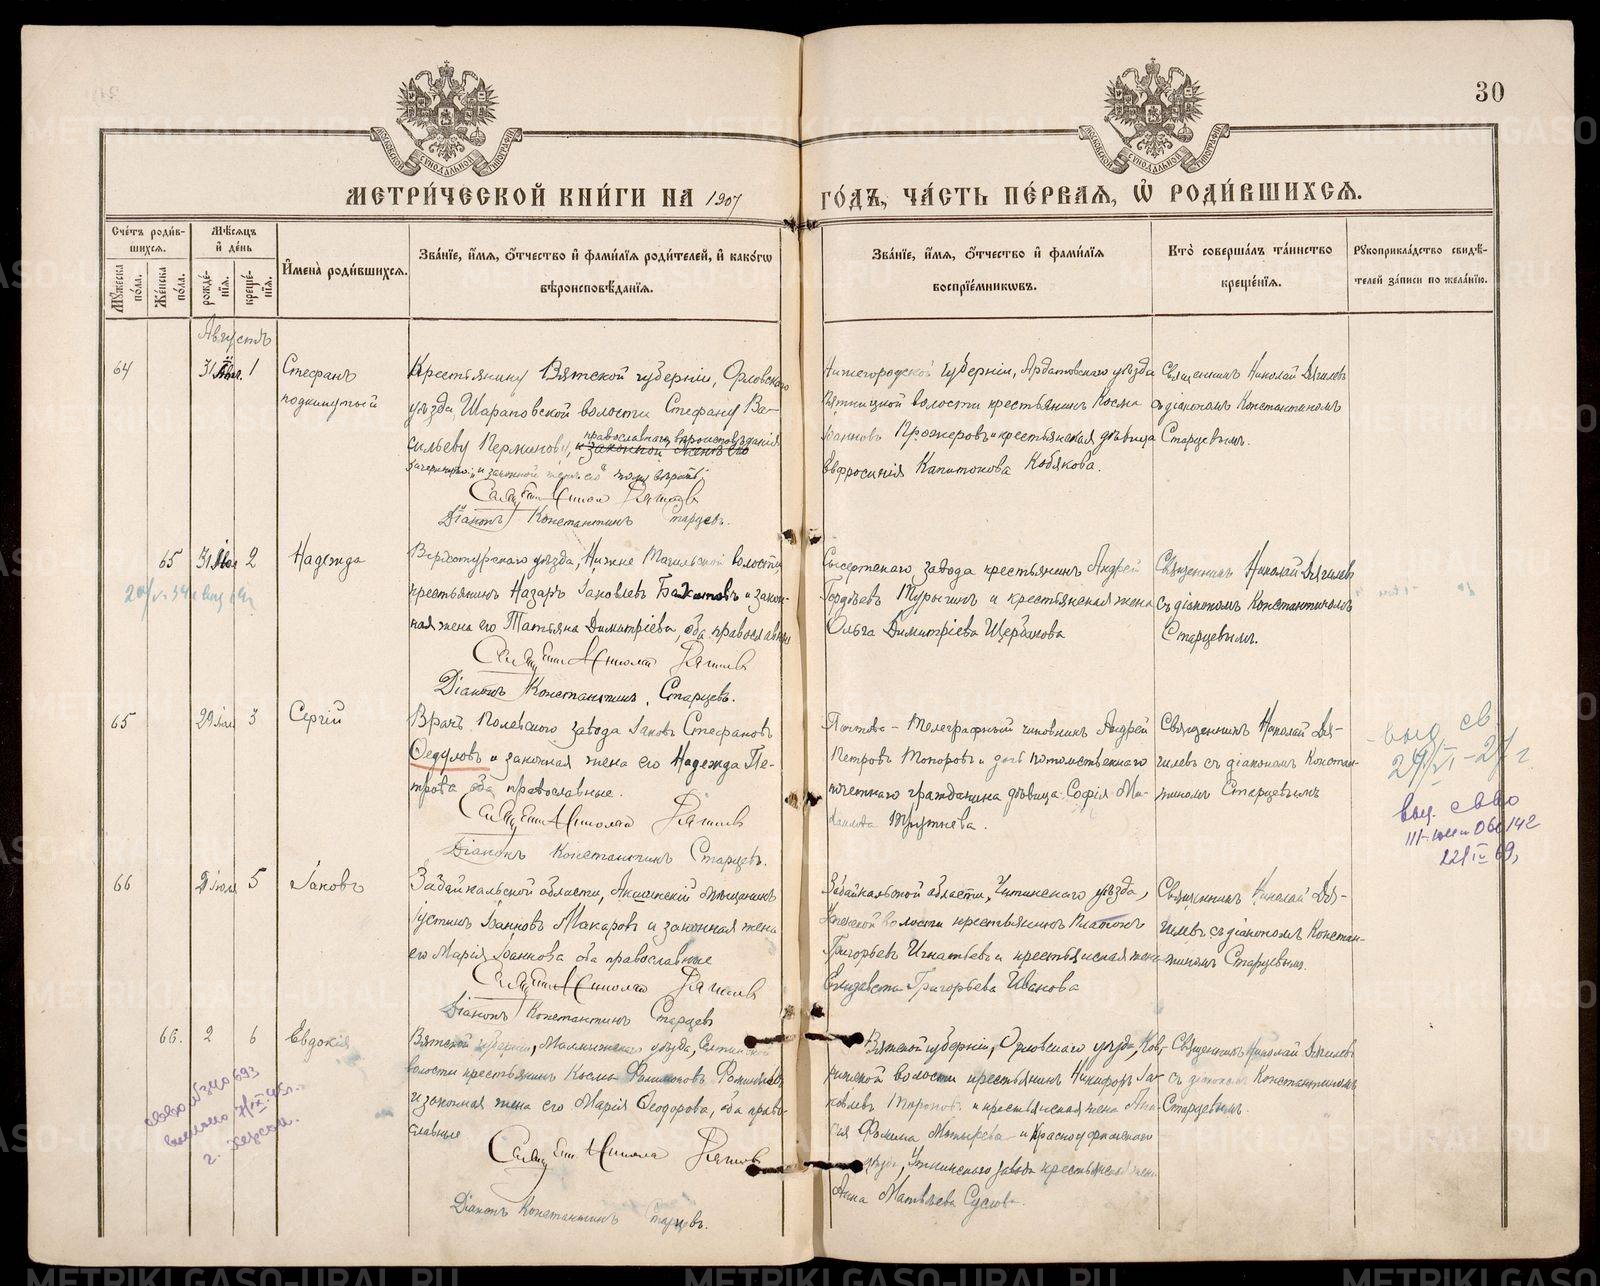 30
МОСКОВСКОЙ СѴНОДАЛЬНОЙ ТИПОГРАФІИ
МОСКОВСКОЙ СѴНОДАЛЬНОЙ ТИПОГРАФІИ
МЕТРИ́ЧЕСКОЙ КНИ́ГИ НА 1907 ГО́ДЪ, ЧА́СТЬ ПЕ́РВАЯ, Ѡ҆ РОДИ́ВШИХСЯ.
Счетъ роди́в-
шихся.
Мꙋжеска по́ла.
Же́нска по́ла.
Мѣсяцъ
и҆ де́нь
рожде́-
нїя.
креще́-
нїя.
И҆мена̀ роди́вшихся.
Зва́нїе, и҆́мя, ѻ҆́тчество и҆ фами́лїя роди́телей, и҆ како́гѡ
вѣроисповѣ́данїя.
Зва́нїе, и҆́мя, ѻ҆́тчество и҆ фами́лїя
воспрїе́мникѡвъ.
Кто̀ соверша́лъ та́инство
креще́нїя.
Рꙋкоприкла́дство свидѣ́-
телей за́писи по жела́нїю.
Августъ
64
31 Іюл. 1
Стефанъ
подкинутый
Крестьянину Вятской губерніи, Орловскаго
уѣзда, Шараповской волости Стефану Ва-
сильеву Перминову, и законной женѣ его
православнаго вѣроисповѣданія
зачеркнуто: „и законной женѣ его“
Священ Николай Дягилевъ
Діаконъ Константинъ Старцевъ.
Нижегородской губерніи, Ардатовскаго уѣзда
крестьянинъ Косма
Іоанновъ и крестьянская дѣвица
Евфросинія Капитонова Кобякова.
Священникъ Николай Дягилевъ
съ діакономъ Константиномъ
Старцевымъ.
65
31 Іюл 2
Надежда
Верхотурскаго уѣзда, Нижне Тагильской волости,
крестьянинъ Назаръ Іаковлевъ и закон-
ная жена его Татьяна Димитріева, оба православные
Священ Николай Дягилевъ
Діаконъ Константинъ Старцевъ.
Сысертскаго завода крестьянинъ Андрей
Гордѣевъ Турыгинъ и крестьянская жена
Ольга Димитріева Щербакова
Священникъ Николай Дягилевъ
съ діакономъ Константиномъ
Старцевымъ.
65
29 Іюл 3
Сергій
Врачъ Полевскаго завода Іаковъ Стефановъ
Федуловъ и законная жена его Надежда Пе-
трова оба православные.
Священ Николай Дягилевъ
Діаконъ Константинъ Старцевъ.
Почтово-Телеграфный чиновникъ Андрей
Петровъ Топоровъ и дочь потомственнаго
почетнаго гражданина дѣвица Софія Ми-
хаилова Трутнева.
Священникъ Николай Дя-
гилевъ съ діакономъ Констан-
тиномъ Старцевымъ
выд. св.
29/VI-27 г.
выд. св-во
060142
66
Іюля 5
Іаковъ
Забайкальской области, Акшинскій мѣщанинъ
Іустинъ Іоанновъ Макаровъ и законная жена
его Марія Іоаннова оба православные
Священ Николай Дягилевъ
Діаконъ Константинъ Старцевъ
Забайкальской области, Читинскаго уѣзда,
волости крестьянинъ Платонъ
Григорьевъ Игнатьевъ и крестьянская жена
Елизавета Григорьева Иванова
Священникъ Николай Дя-
гилевъ съ діакономъ Констан-
тиномъ Старцевымъ.
66.
2 6
Евдокія
Вятской губерніи, Малмыжскаго уѣзда,
волости крестьянинъ Косма Филимоновъ
и законная жена его Марія Ѳеодорова, оба право-
славные
Священ Николай Дягилевъ
Діаконъ Константинъ Старцевъ.
Вятской губерніи, Орловскаго уѣзда,
волости крестьянинъ Никифоръ Іа-
ковлевъ и крестьянская жена
Фомина и Красноуфимскаго
уѣзда, Уткинскаго завода крестьянская жена
Анна Матвѣева Суслова.
Священникъ Николай Дягилевъ
съ діакономъ Константиномъ
Старцевымъ.
METRIKI.GASO-URAL.RU